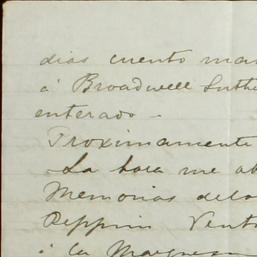 dias cuento man
á Broadwell Suthe
enterado -
Proximamente
La hora me ab
Memorias de los
Peppin Vent
á la Marquesa